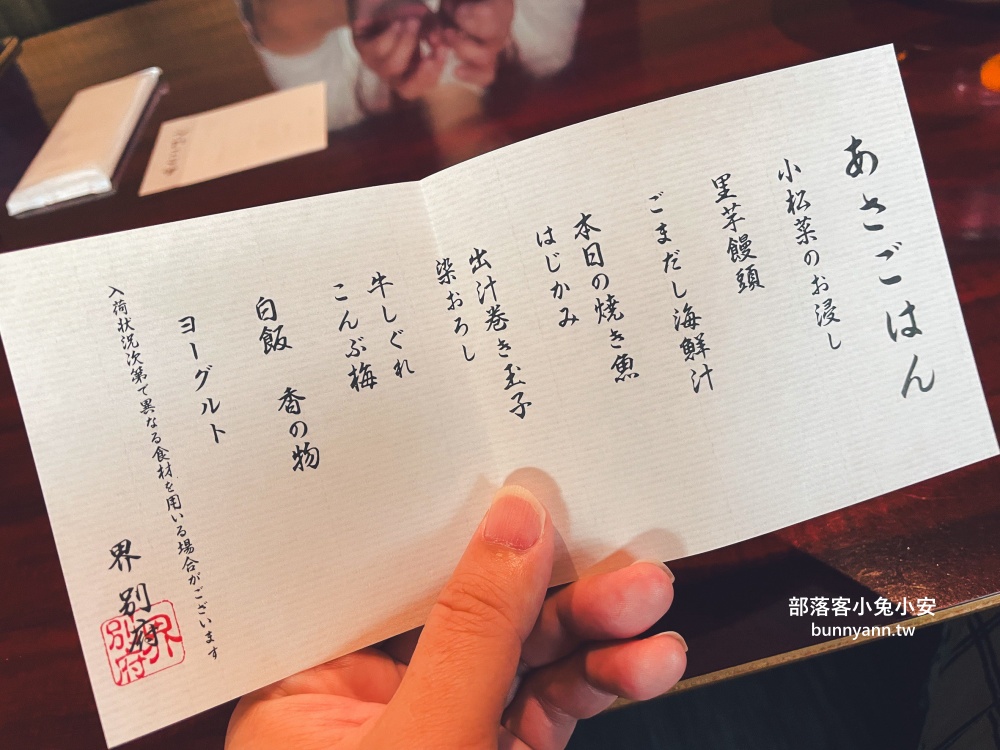 あさごはん
小松菜のお浸し
里芋饅頭
ごまだし海鮮汁
本日の焼き魚
はじかみ
出汁巻き玉子
染おろし
牛しぐれ
こんぶ梅
白飯　香の物
ヨーグルト
入荷状況次第で異なる食材を用いる場合がございます
界 別府
界別府
部落客小兔小安
bunnyann.tw